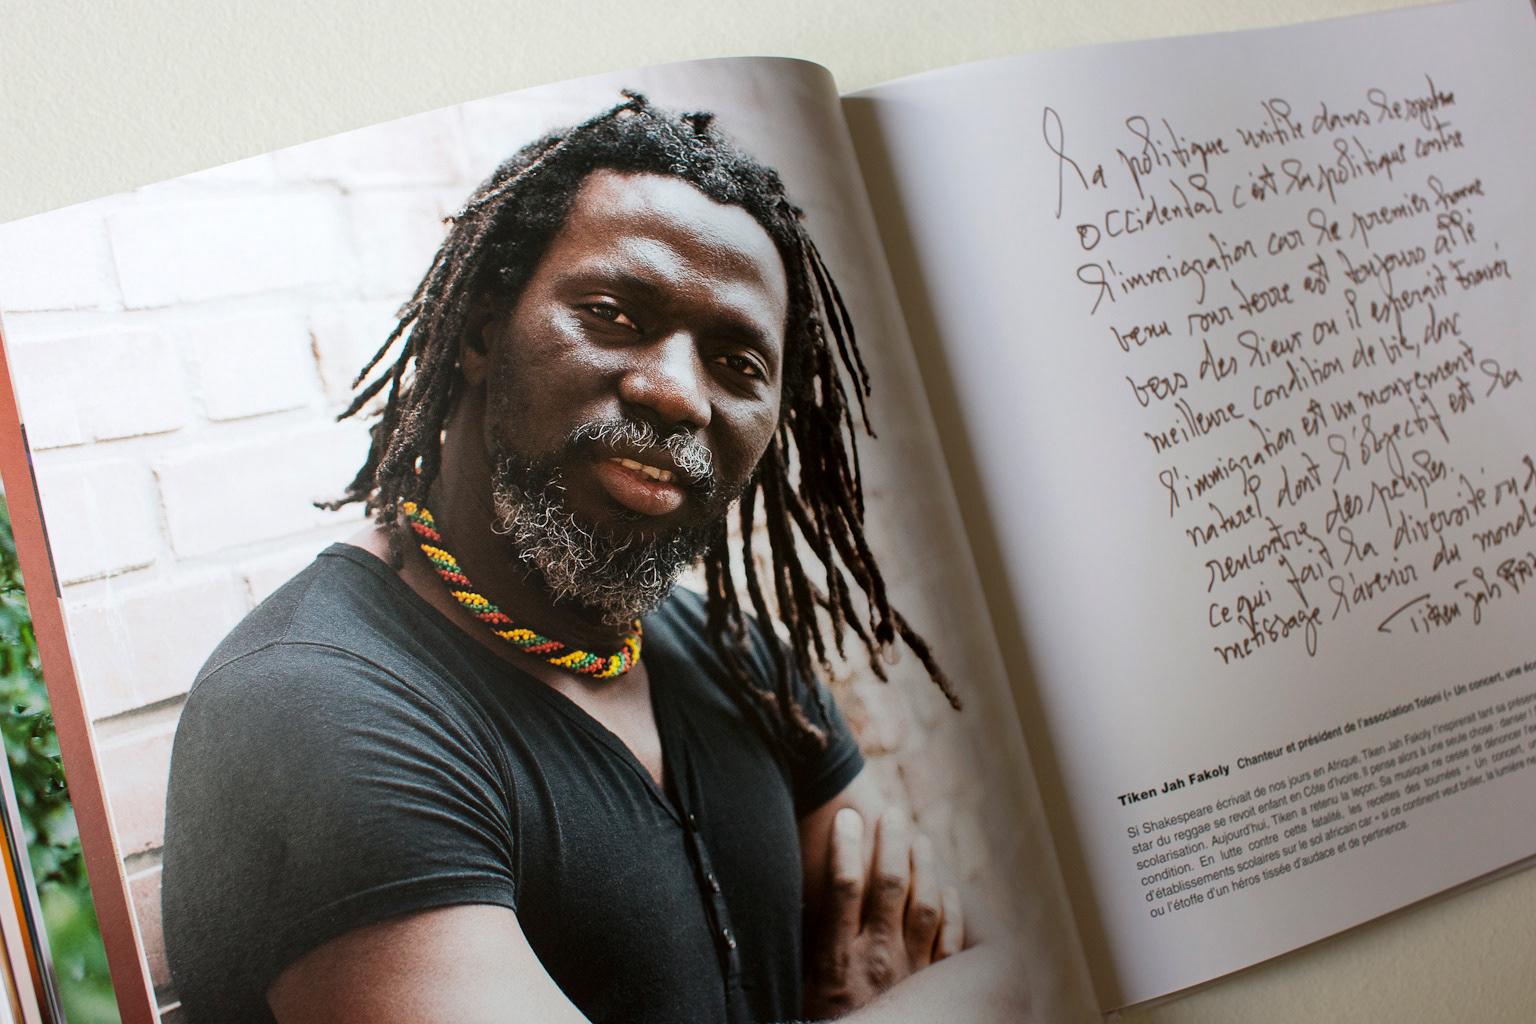 La politique utile dans le système
occidental c'est la politique contre
l'immigration car le premier homme
venu sur terre est toujours allé
vers des lieux ou il esperait trouver
meilleure condition de vie, donc
l'immigration est un mouvement
naturel dont l'objectif est la
rencontre des peuples.
ce qui fait la diversité ou
metissage l'avenir du monde
Tiken jah
Tiken Jah Fakoly Chanteur et président de l'association Toloni (« Un concert, une
Si Shakespeare écrivait de nos jours en Afrique, Tiken Jah Fakoly l'inspirerait tant sa
star du reggae se revoit enfant en Côte d'Ivoire. Il pense alors à une seule chose : danser
scolarisation. Aujourd'hui, Tiken a retenu la leçon. Sa musique ne cesse de dénoncer
condition. En lutte contre cette fatalité, les recettes des tournées « Un concert,
d'établissements scolaires sur le sol africain car « si ce continent veut briller, la lumière
ou l'étoffe d'un héros tissée d'audace et de pertinence.